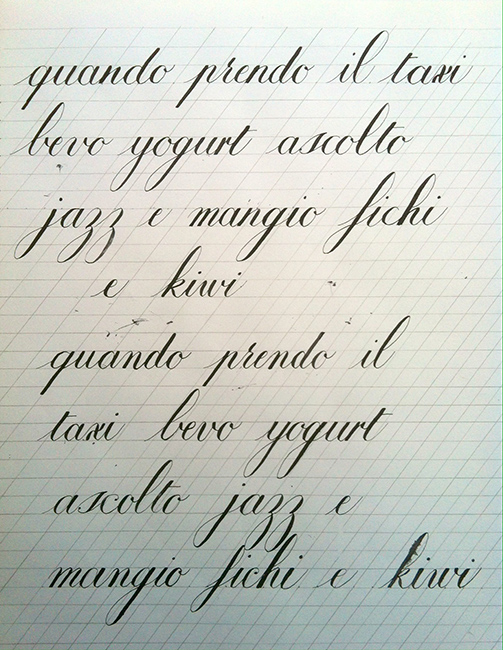 quando prendo il taxi
bevo yogurt ascolto
jazz e mangio fichi
e kiwi
quando prendo il
taxi bevo yogurt
ascolto jazz e
mangio fichi e kiwi